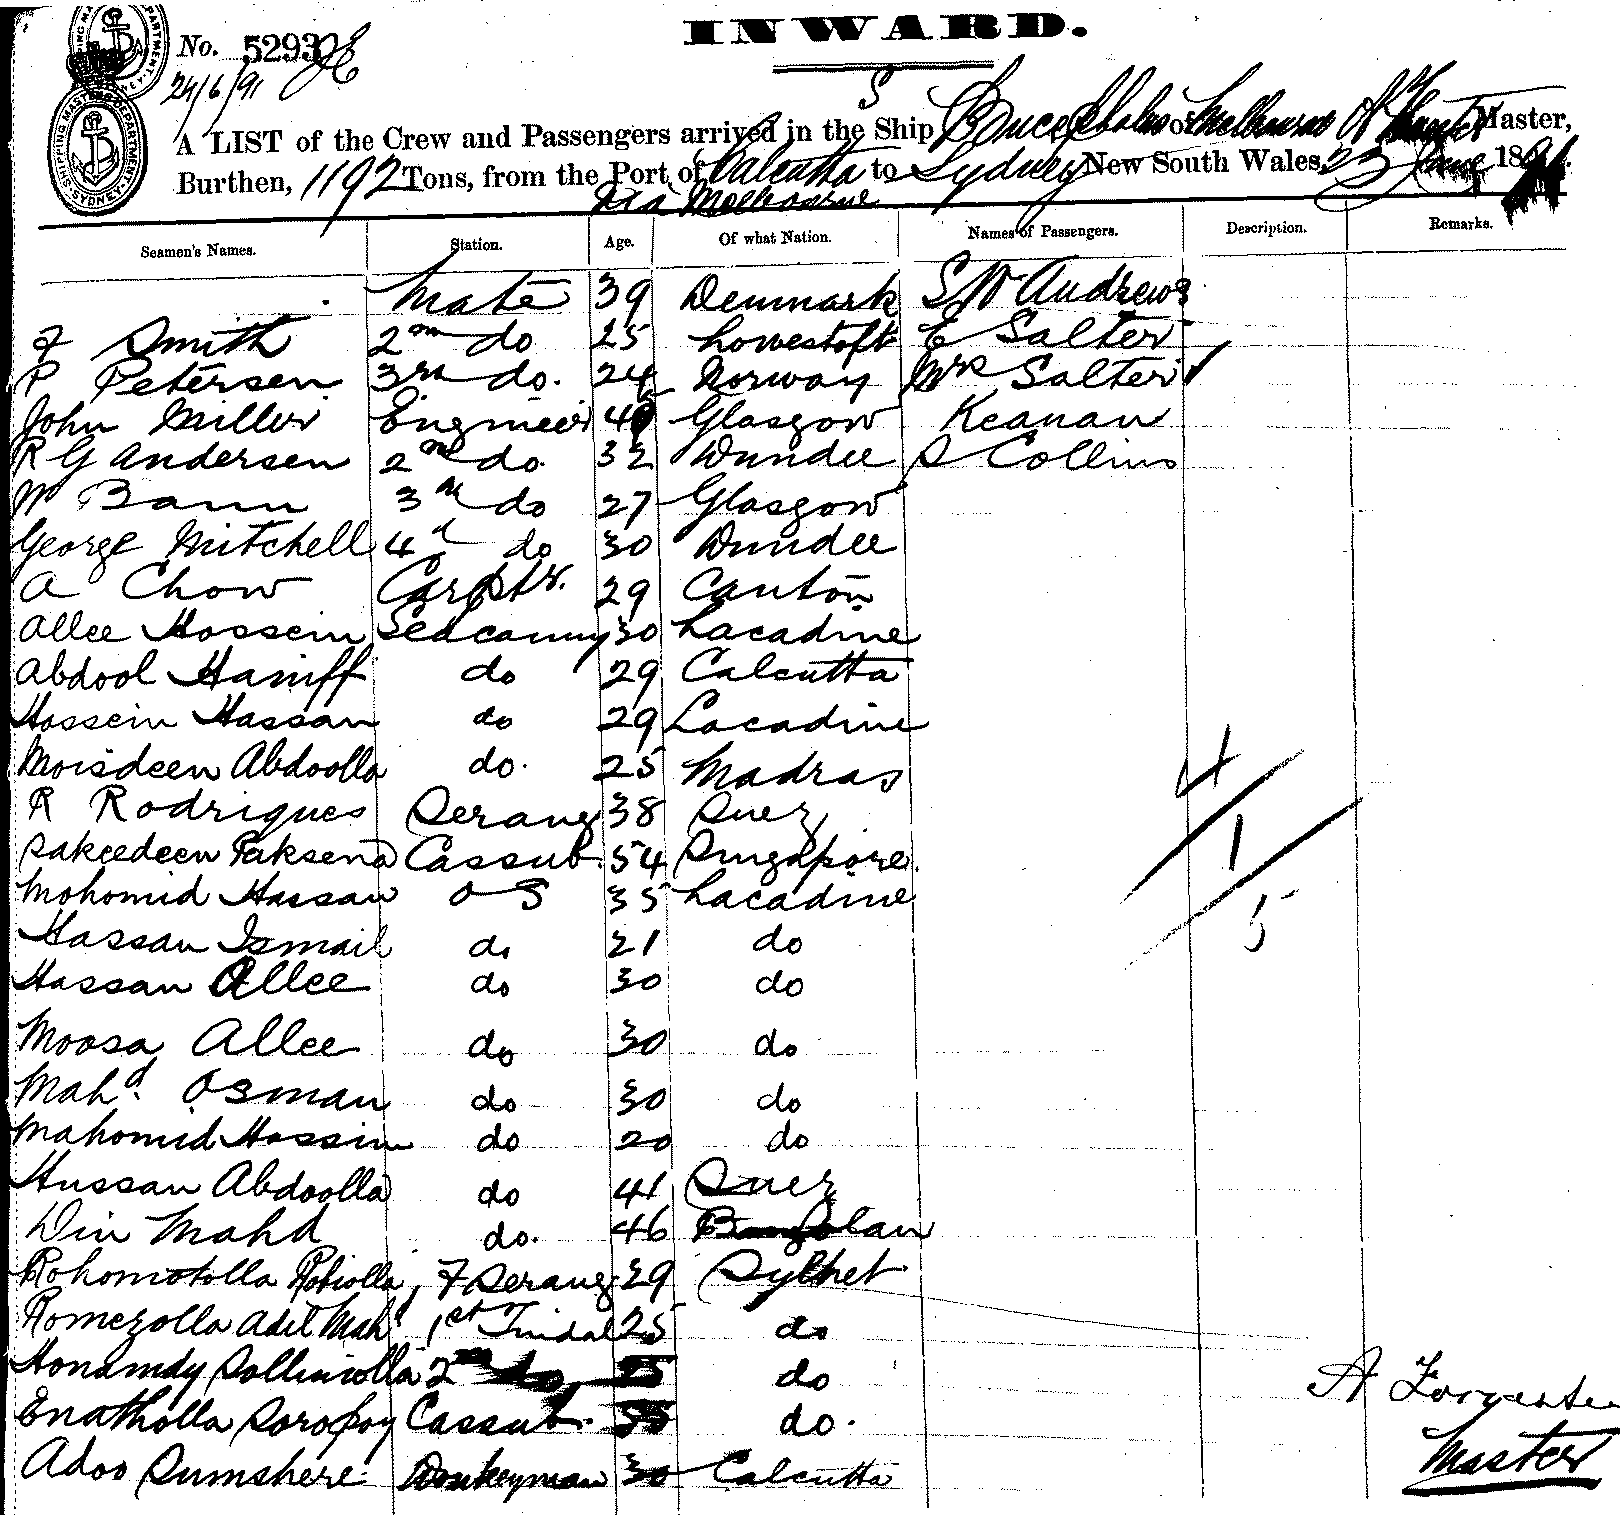 INWARD.
No. 5293
24/6/91
A LIST of the Crew and Passengers arrived in the Ship of Melbourne Master,
Burthen, 1192 Tons, from the Port of Calcutta to Sydney New South Wales, 23 June 1891.
Via Melbourne
Seamen's Names. Station. Age. Of what Nation. Names of Passengers. Description. Remarks.
Mate 39 Denmark S W Andrews
F Smith 2nd do 25 Lowestoft E Salter
P Petersen 3rd do. 24 Norway Mrs Salter
John Miller Engineer Glasgow Keanan
R G Andersen 2nd do. 32 Dundee S Collins
W Bann 3rd do 27 Glasgow
George Mitchell 4th do 30 Dundee
A Chow Carptr. 29 Canton
Allee Hossein Seacunny 30 Lacadine
Abdool Haniff do 29 Calcutta
Hossein Hassan do 29 Lacadine
Moisdeen Abdoolla do. 25 Madras
R Rodrigues Serang 38 Suez
4
Cassub 54 Singapore.
1
Mohomid Hassan O S 35 Lacadine
5
Hassan Ismail do 21 do
Hassan Allee do 30 do
Moosa Allee do 30 do
Mahd. Osman do 30 do
Mahomid Hossin do 20 do
Hussan Abdoolla do 41 Suez
Din Mahd do. 46
Rohomotolla F Serang 29 Sylhet
Romezolla Adil Mahd 1st Tindal 25 do
2nd do do
Cassub do.
Adoo Sumshere Donkeyman 30 Calcutta
Master